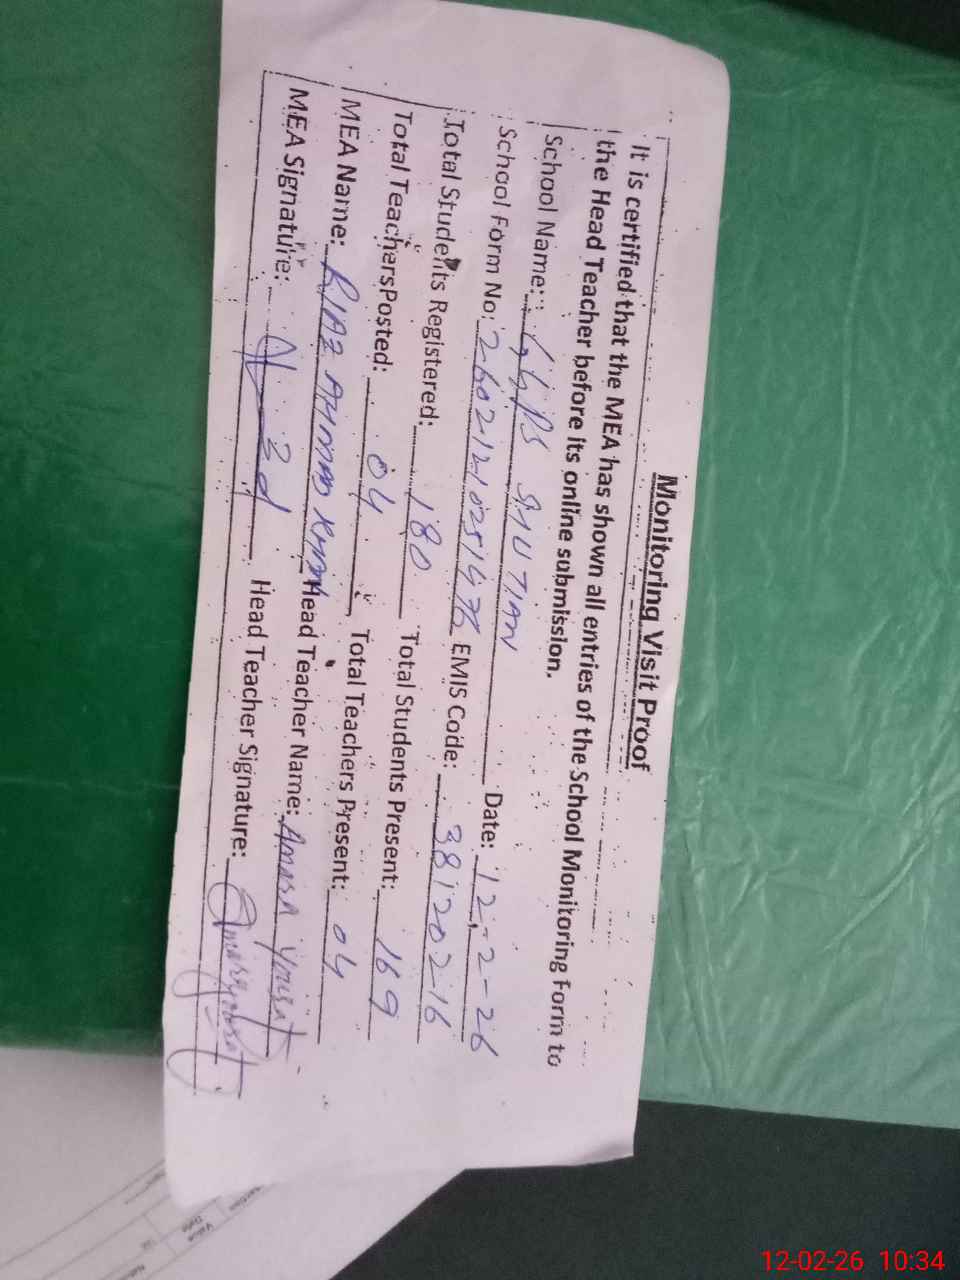 Monitoring Visit Proof
It is certified that the MEA has shown all entries of the School Monitoring Form to
the Head Teacher before its online submission.
School Name: GGPS BHUTIAN Date: 12-2-26
School Form No: 260212102514 EMIS Code: 38120216
Total Students Registered: 180 Total Students Present: 169
Total Teachers Posted: 04 Total Teachers Present: 04
MEA Name: RIAZ AHMAD KHAN Head Teacher Name: Amara
MEA Signature: Head Teacher Signature:
12-02-26 10:34